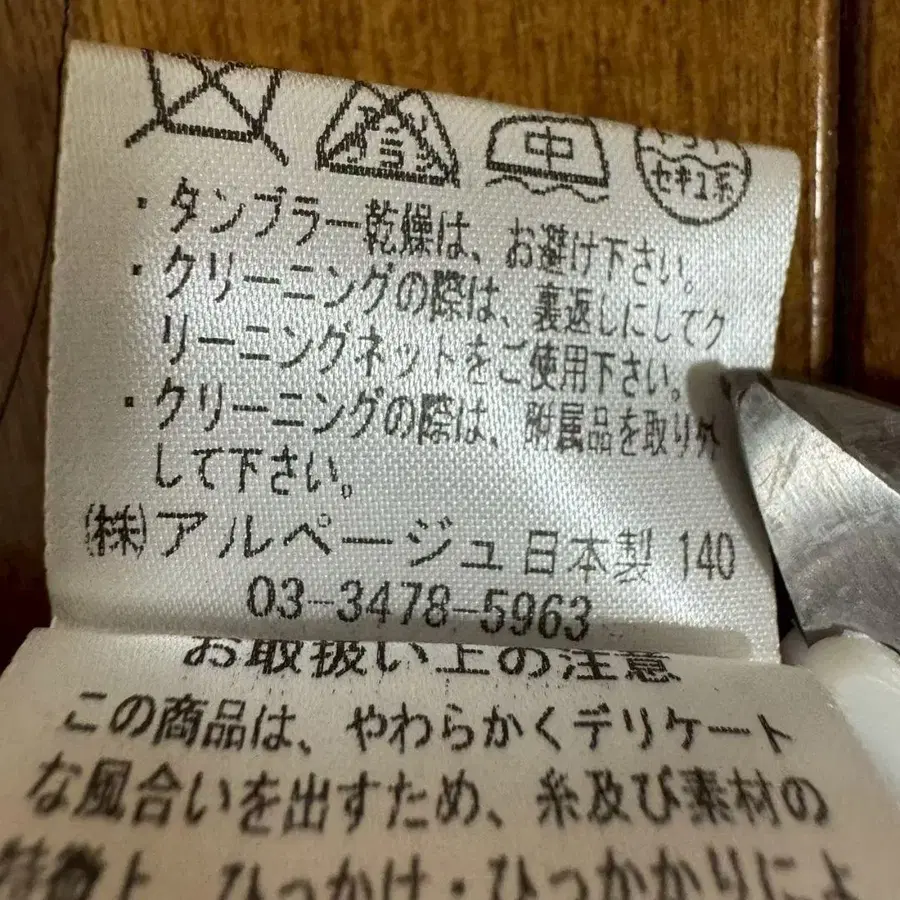 中
セキユ系
・タンブラー乾燥は、お避け下さい。
・クリーニングの際は、裏返しにしてク
リーニングネットをご使用下さい。
・クリーニングの際は、附属品を取り外
して下さい。
(株)アルページュ 日本製 140
03-3478-5963
お取扱い上の注意
この商品は、やわらかくデリケート
な風合いを出すため、糸及び素材の
特徴上、ひっかけ・ひっかかりによ